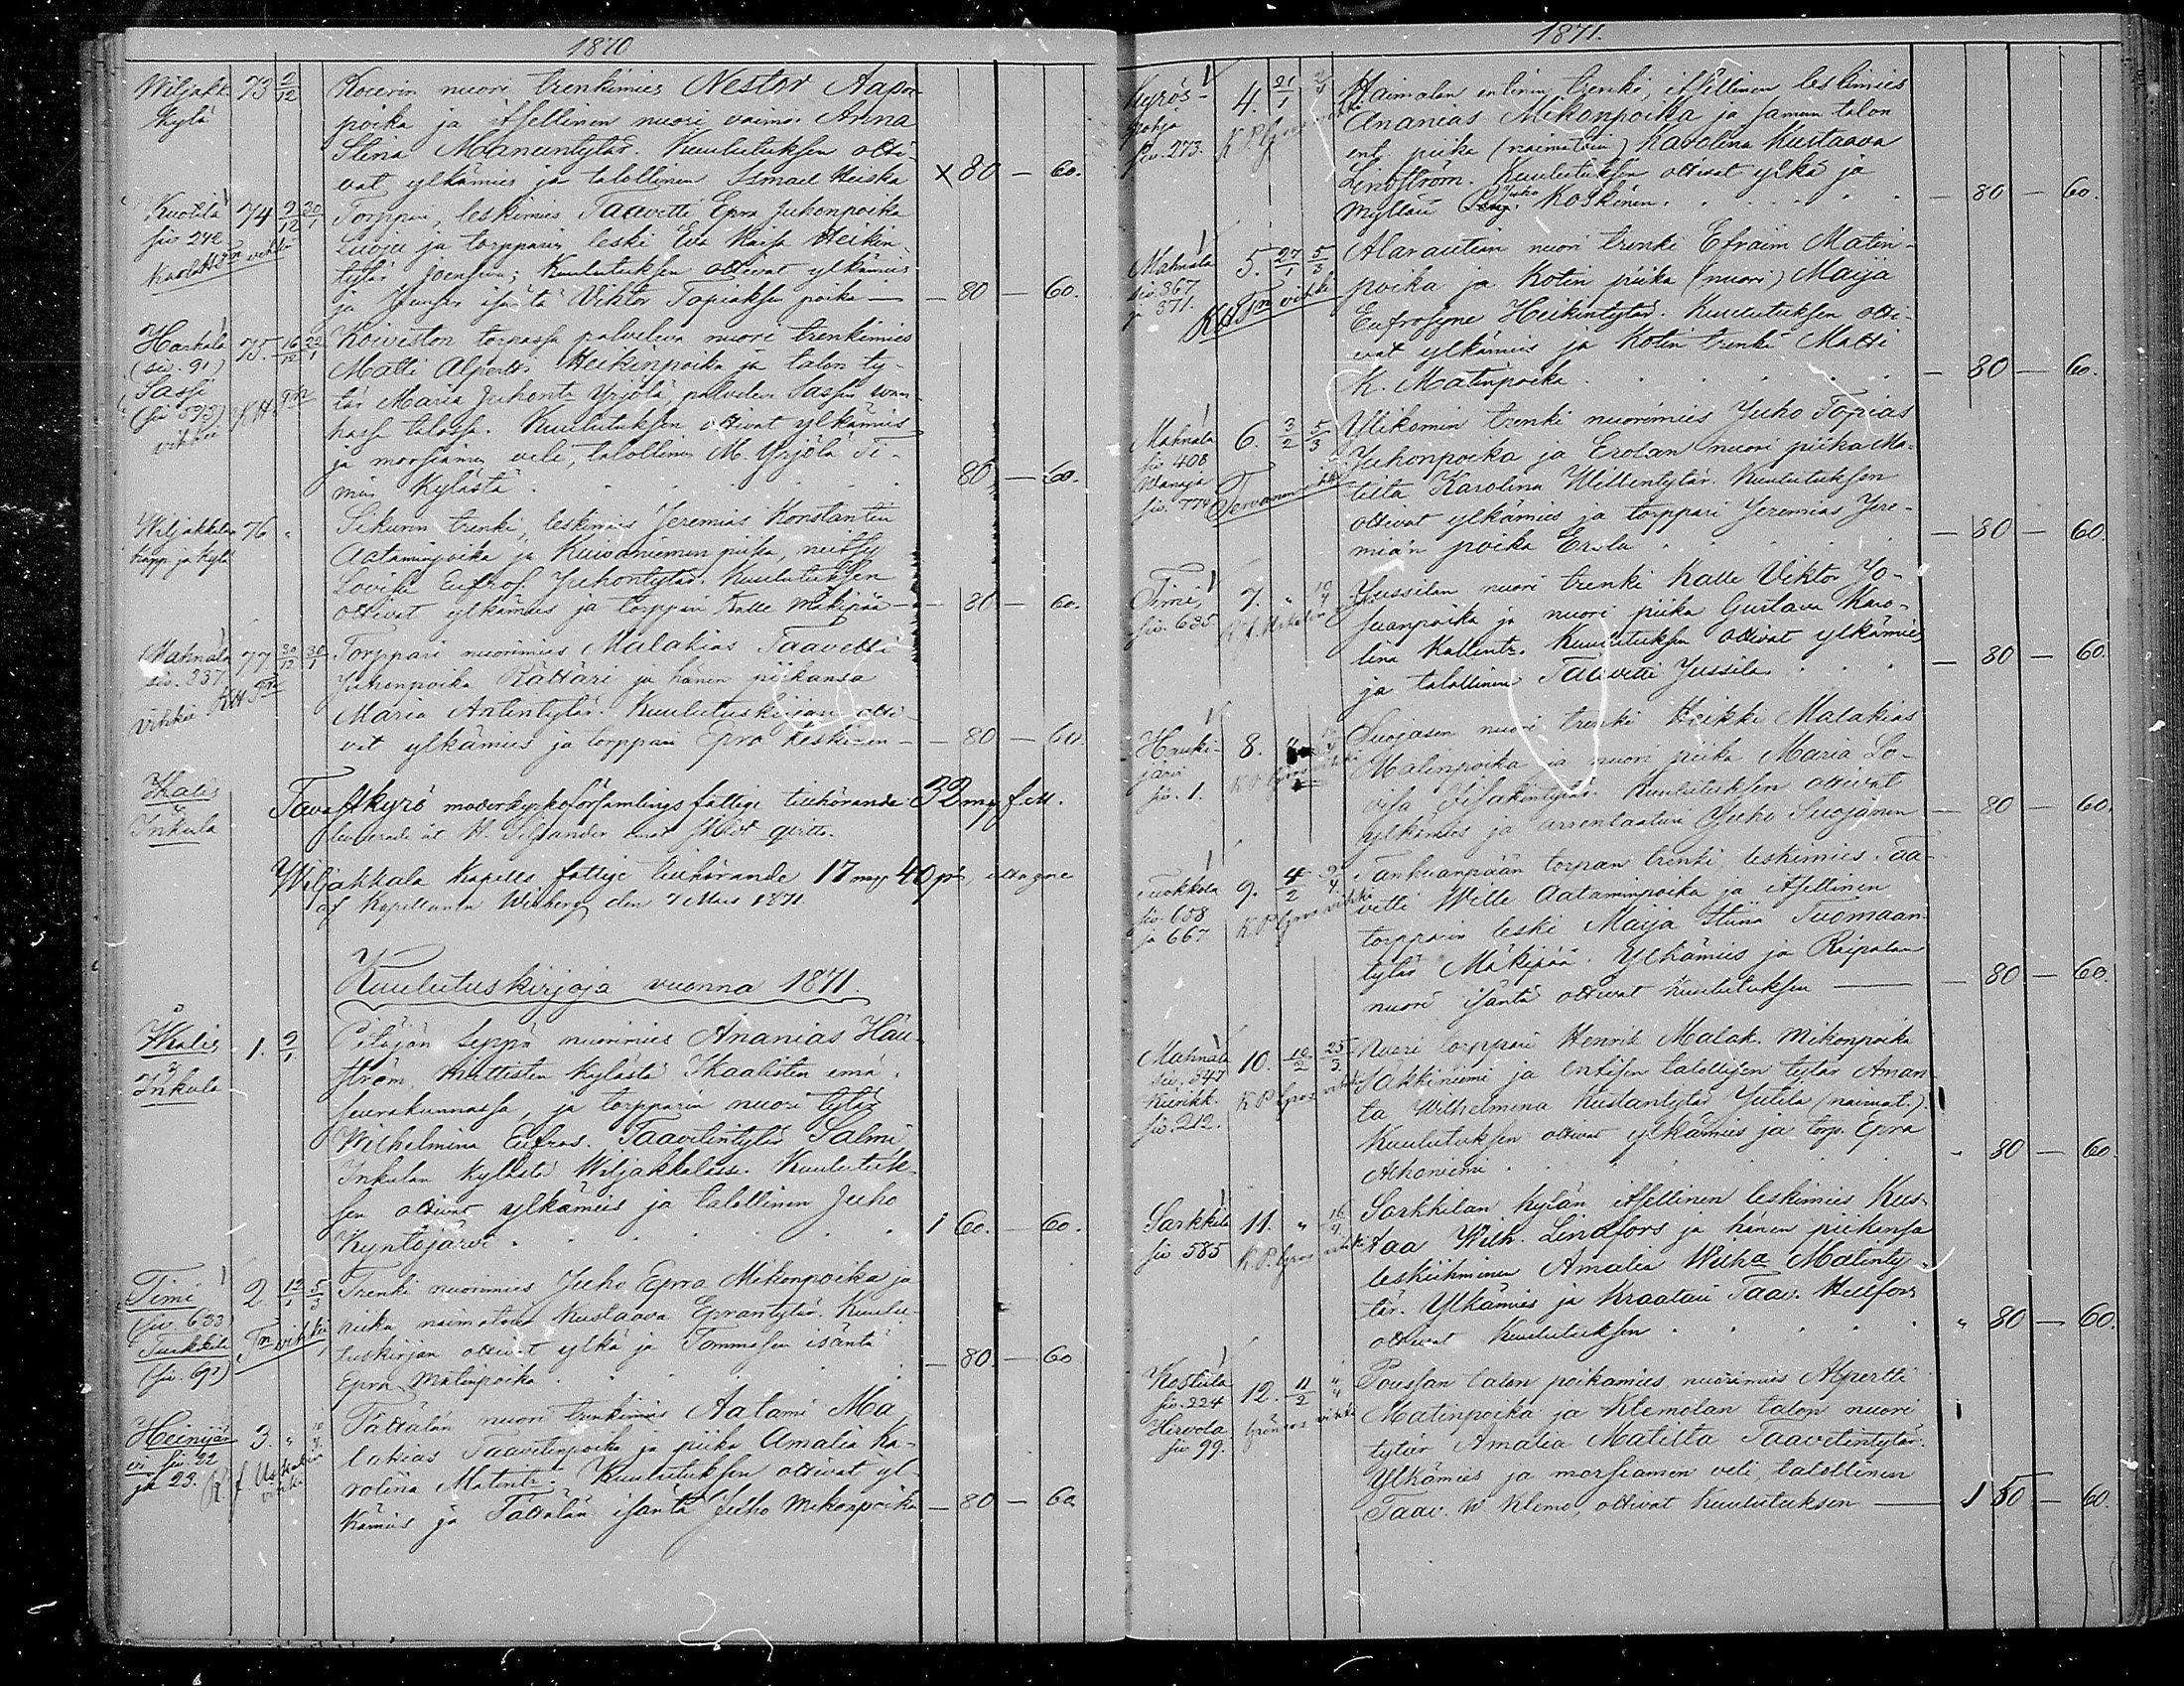 1870
Wiljakk. 73 2/12 Koierin nuori trenkimies Nestor Aapo-
kylä poika ja itsellinen nuori vaimo Anna
Stina Manuntytär. Kuulutuksen otti-
vat ylkämies ja talollinen Ismael Heiska X 80 — 60.
Kuotila 74 9/12 30/1 Torppari, leskimies Taavetti Epra Juhonpoika
siv 242 Luoju ja torpparin leski Eva Kaisa Heikin-
tytär Joensuu; Kuulutuksen ottivat ylkämies
ja isäntä Viktor Topiaksen poika — — 80 — 60.
Harkala 75. 16/12 22/1 Koiviston torpassa palveleva nuori trenkimies
(siv. 91) Matti Alpertti Heikinpoika ja talon ty-
Sassi tär Maria Juhontr Yrjölä, palvelee Sassin wan-
(siv 593) KH Tm hassa talossa. Kuulutuksen ottivat ylkämies
vihki ja morsiamen veli, talollinen M. Yrjölä Ti-
min kylästä 80 — 60.
Wiljakkalan 76 " Sikurin trenki, leskimies Jeremias Konstantin
Kapp. ja kylä Aataminpoika ja Kuivaniemen piika, neitsy
Lovisa Eufros. Juhontytär. Kuulutuksen
ottivat ylkämies ja torppari Kalle Mäkipää — — 80 — 60.
Mahnala 77 30/12 30/1 Torppari nuorimies Malakias Taavetti
siv. 337 Juhonpoika Rättäri ja hänen piikansa
vihkii KH Tm Maria Antintytär. Kuulutuskirjan otti-
vat ylkämies ja torppari Epra Keskinen — — 80 — 60.
Ikalis Tavastkyrö moderkyrkoförsamlings fattige tillhörande 32 my f.m.
Inkula
Wiljakkala Kapells fattige tillhörande 17 my 40 pi,
af Kapellanen Winberg den 7 Mars 1871
Kuulutuskirjoja vuonna 1871.
Ikalis 1. 9/1 Pitäjän Seppä nuorimies Ananias Häu-
& ström, Miittisten kylästä Ikaalisten emä-
Inkula seurakunnassa, ja torpparin nuori tytär
Wilhelmina Eufros. Taavetintytär Salmi
Inkulan kylästä Wiljakkalassa. Kuulutuk-
sen ottivat ylkämies ja talollinen Juho
Kyntöjärvi 1 60. — 60.
Timi 2 12/1 5/3 Trenki nuorimies Juho Epra Mikonpoika ja
(siv. 633) piika naimatoin Kustaava Eprantytär. Kuulu-
Turkkila Tm vihkii tuskirjan ottivat ylkä ja Tommasen isäntä
(siv. 691) Epra Matinpoika — 80. — 60
Heinijär- 3. " Tättälän nuori trenkimies Aatami Ma-
vi siv. 22 lakias Taavetinpoika ja piika Amalia Ka-
ja 23. roliina Matintr. Kuulutuksen ottivat yl-
kämies ja Tättälän isäntä Juho Mikonpoika — 80 — 60
1871.
Kyrös- 4. 21/1 2/4 Haimolan entinen trenki, itsellinen leskimies
pohja Ananias Mikonpoika ja saman talon
siv. 273. ent. piika (naimatoin) Karolina Kustaava
Lindström. Kuulutuksen ottivat ylkä ja
Mylläri Juho Koskinen. — 80 — 60.
Mahnala 5. 27/1 5/3 Alarautian nuori trenki Efraim Matin-
siv 367 poika ja Kotin piika (nuori) Maija
ja 371. KH Tm vihki Eufrosyne Heikintytär. Kuulutuksen otti-
vat ylkämies ja Kotin trenki Matti
K. Matinpoika — 80 — 60.
Mahnala 6. 3/2 5/3 Ylikomin trenki nuorimies Juho Topias
siv 408 Juhonpoika ja Erolan nuori piika Ma-
siv. 774 tilta Karolina Willentytär. Kuulutuksen
ottivat ylkämies ja torppari Jeremias Jere-
mian poika Erola — 80 — 60.
Timi 7. " 10/4 Jussilan nuori trenki Kalle Viktor Jo-
siv. 635 suanpoika ja nuori piika Gustava Karo-
lina Kallentr. Kuulutuksen ottivat ylkämies
ja talollinen Taavetti Jussila — 80 — 60.
Houki- 8. " Suojasen nuori trenki Heikki Malakias
järvi Matinpoika ja nuori piika Maria Lo-
siv. 1. visa Iisakintytär. Kuulutuksen ottivat
ylkämies ja arrentaatori Juho Suojanen — 80 — 60.
Tuokkola 9. 4/2 Tankuanpään torpan trenki leskimies Taa-
siv. 658 vetti Wille Aataminpoika ja itsellinen
ja 667 torpparin leski Maija Stiina Tuomaan-
tytär Mäkipää. Ylkämies ja Raipalan
nuori isäntä ottivat kuulutuksen — — 80 — 60.
Mahnala 10. 10/2 25/3 Nuori torppari Henrik Malak. Mikonpoika
Jakkiniemi ja entisen talollisen tytär Aman-
siv. 212. ta Wilhelmina Kustantytär Jutila (naimat.).
Kuulutuksen ottivat ylkämies ja torp. Epra
Ahoniemi " 80 — 60.
Sarkkila 11. " 16/4 Sarkkilan kylän itsellinen leskimies Kus-
siv 585 taa Wilh. Lindfors ja hänen piikansa
leskiihminen Amalia Wilha Matinty-
tär. Ylkämies ja Kraatari Taav. Hellfors
ottivat Kuulutuksen " 80 — 60.
Kostula 12. 11/2 Poussan talon poikamies, nuorimies Alpertti
siv. 224 Matinpoika ja Klemolan talon nuori
Hirvola tytär Amalia Matilta Taavetintytär.
siv 99. Ylkämies ja morsiamen veli, talollinen
Taav. W. Klemo, ottivat Kuulutuksen — 1 50 — 60.